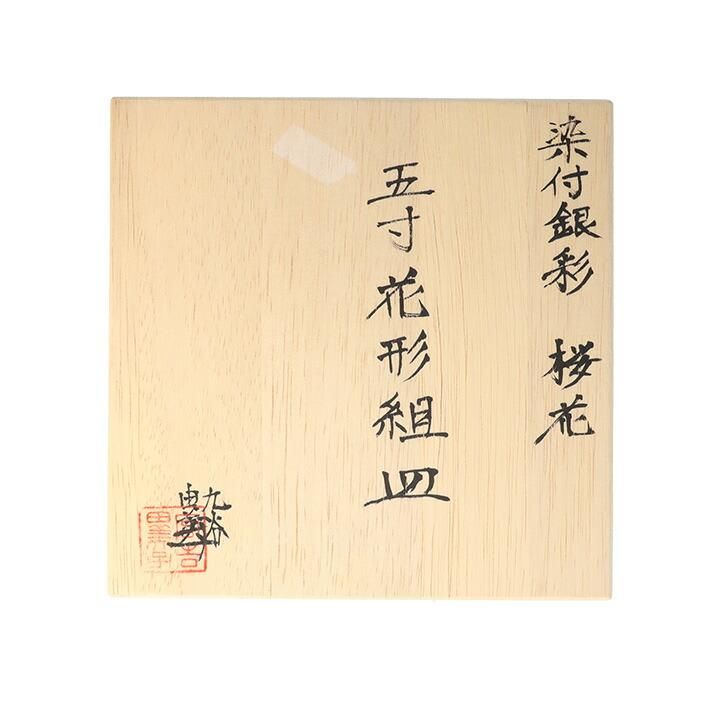 染付銀彩 桜花
五寸花形組皿
九谷